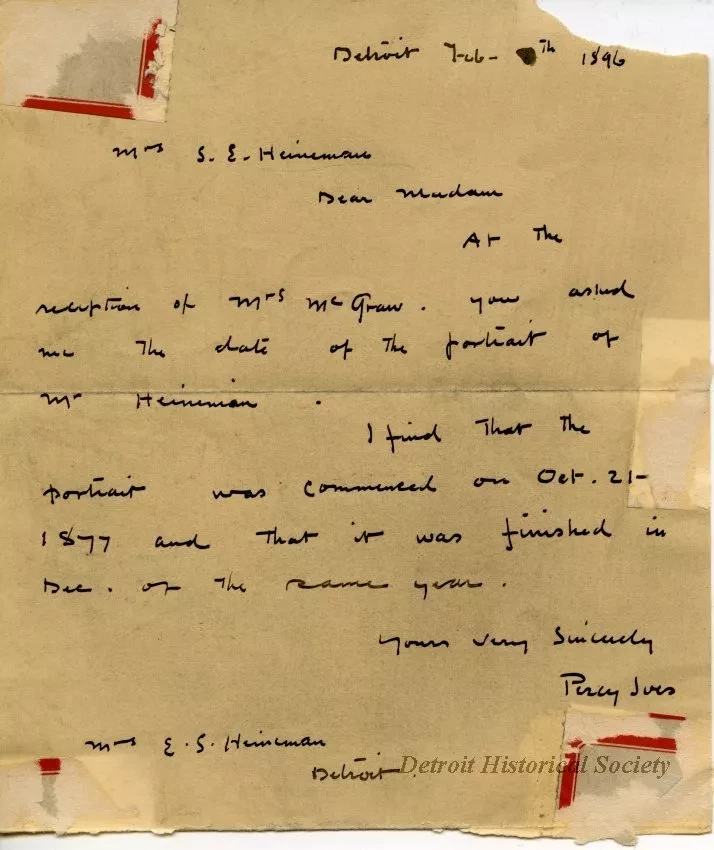 Detroit Feb- th 1896
Mrs S. E. Heineman
Dear Madam
At the
reception of Mrs McGraw. you asked
me the date of the portrait of
Mr Heineman.
I find that the
portrait was commenced on Oct. 21-
1877 and that it was finished in
Dec. of the same year.
Yours very Sincerely
Percy Ives
Mrs E. S. Heineman
Detroit.
Detroit Historical Society